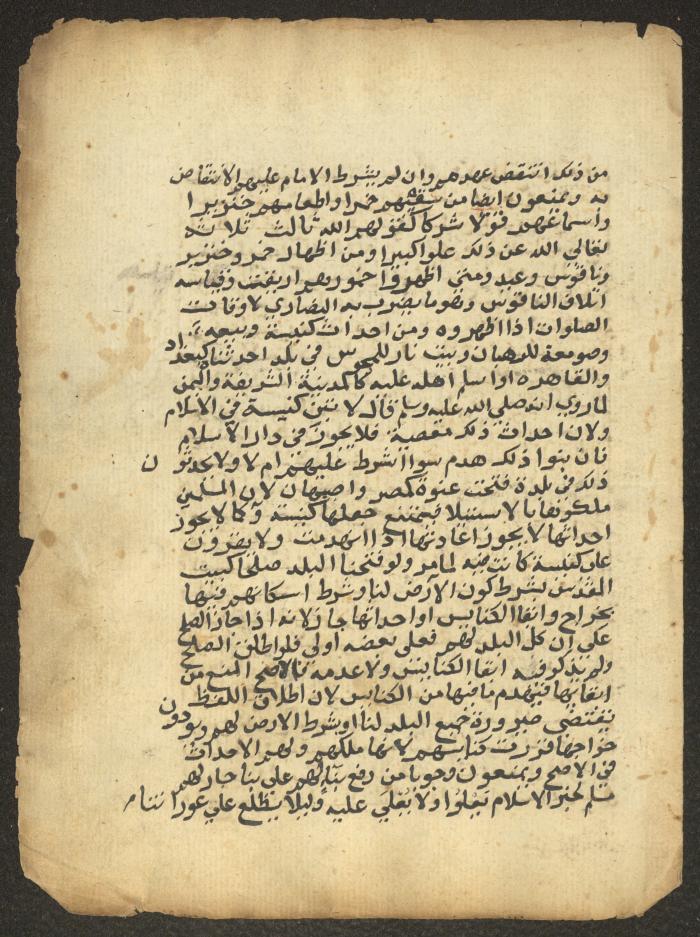 من ذلك انتقض عهدهم وان لم يشرط الامام عليهم الانتقاض
به ويمنعون ايضا من سقيهم خمرا واطعامهم خنزيرا
واسماعهم قولا شركا كقولهم الله ثالث ثلاثه
تعالي الله عن ذلك علوا كبيرا ومن اظهار خمر وخنزير
وناقوس وعيد ومتي اظهروا خمورهم اريقت وقياسه
اتلاف الناقوس وهو ما يضرب به النصاري لاوقات
الصلوات اذا اظهروه ومن احداث كنيسة وبيعه
وصومعة للرهبان وبيت نار للمجوس في بلد احدثناه كبغداد
والقاهره او اسلم اهله عليه كالمدينة الشريفة واليمن
لما روي انه صلي الله عليه وسلم قال لا تبني كنيسة في الاسلام
ولان احداث ذلك معصية فلا يجوز في دار الاسلام
فان بنوا ذلك هدم سوا اشرط عليهم ام لا ولا يحدثون
ذلك في بلدة فتحت عنوة كمصر واصبهان لان المسلمين
ملكوها بالاستيلا فيمتنع جعلها كنيسة وكما لا يجوز
احداثها لا يجوز اعادتها اذا انهدمت ولا يقرون
علي كنيسة كانت فيه لما مر ولو فتحنا البلد صلحا كبيت
المقدس بشرط كون الارض لنا وشرط اسكانهم فيها
بخراج وابقا الكنايس او احداثها جاز لانه اذا جاز الصلح
علي ان كل البلد لهم فعلي بعضه اولي فلو اطلق الصلح
ولم يذكر فيه ابقا الكنايس ولا عدمه فالاصح المنع من
ابقايها فيهدم ما فيها من الكنايس لان اطلاق اللفظ
يقتضي صيرورة جميع البلد لنا او بشرط الارض لهم ويودون
خراجها قررت كنايسهم لانها ملكهم ولهم الاحداث
في الاصح ويمنعون وجوبا من رفع بنا لهم علي بنا جار لهم
مسلم لخبر الاسلام يعلوا ولا يعلي عليه وليلا يطلع علي عوراتنا